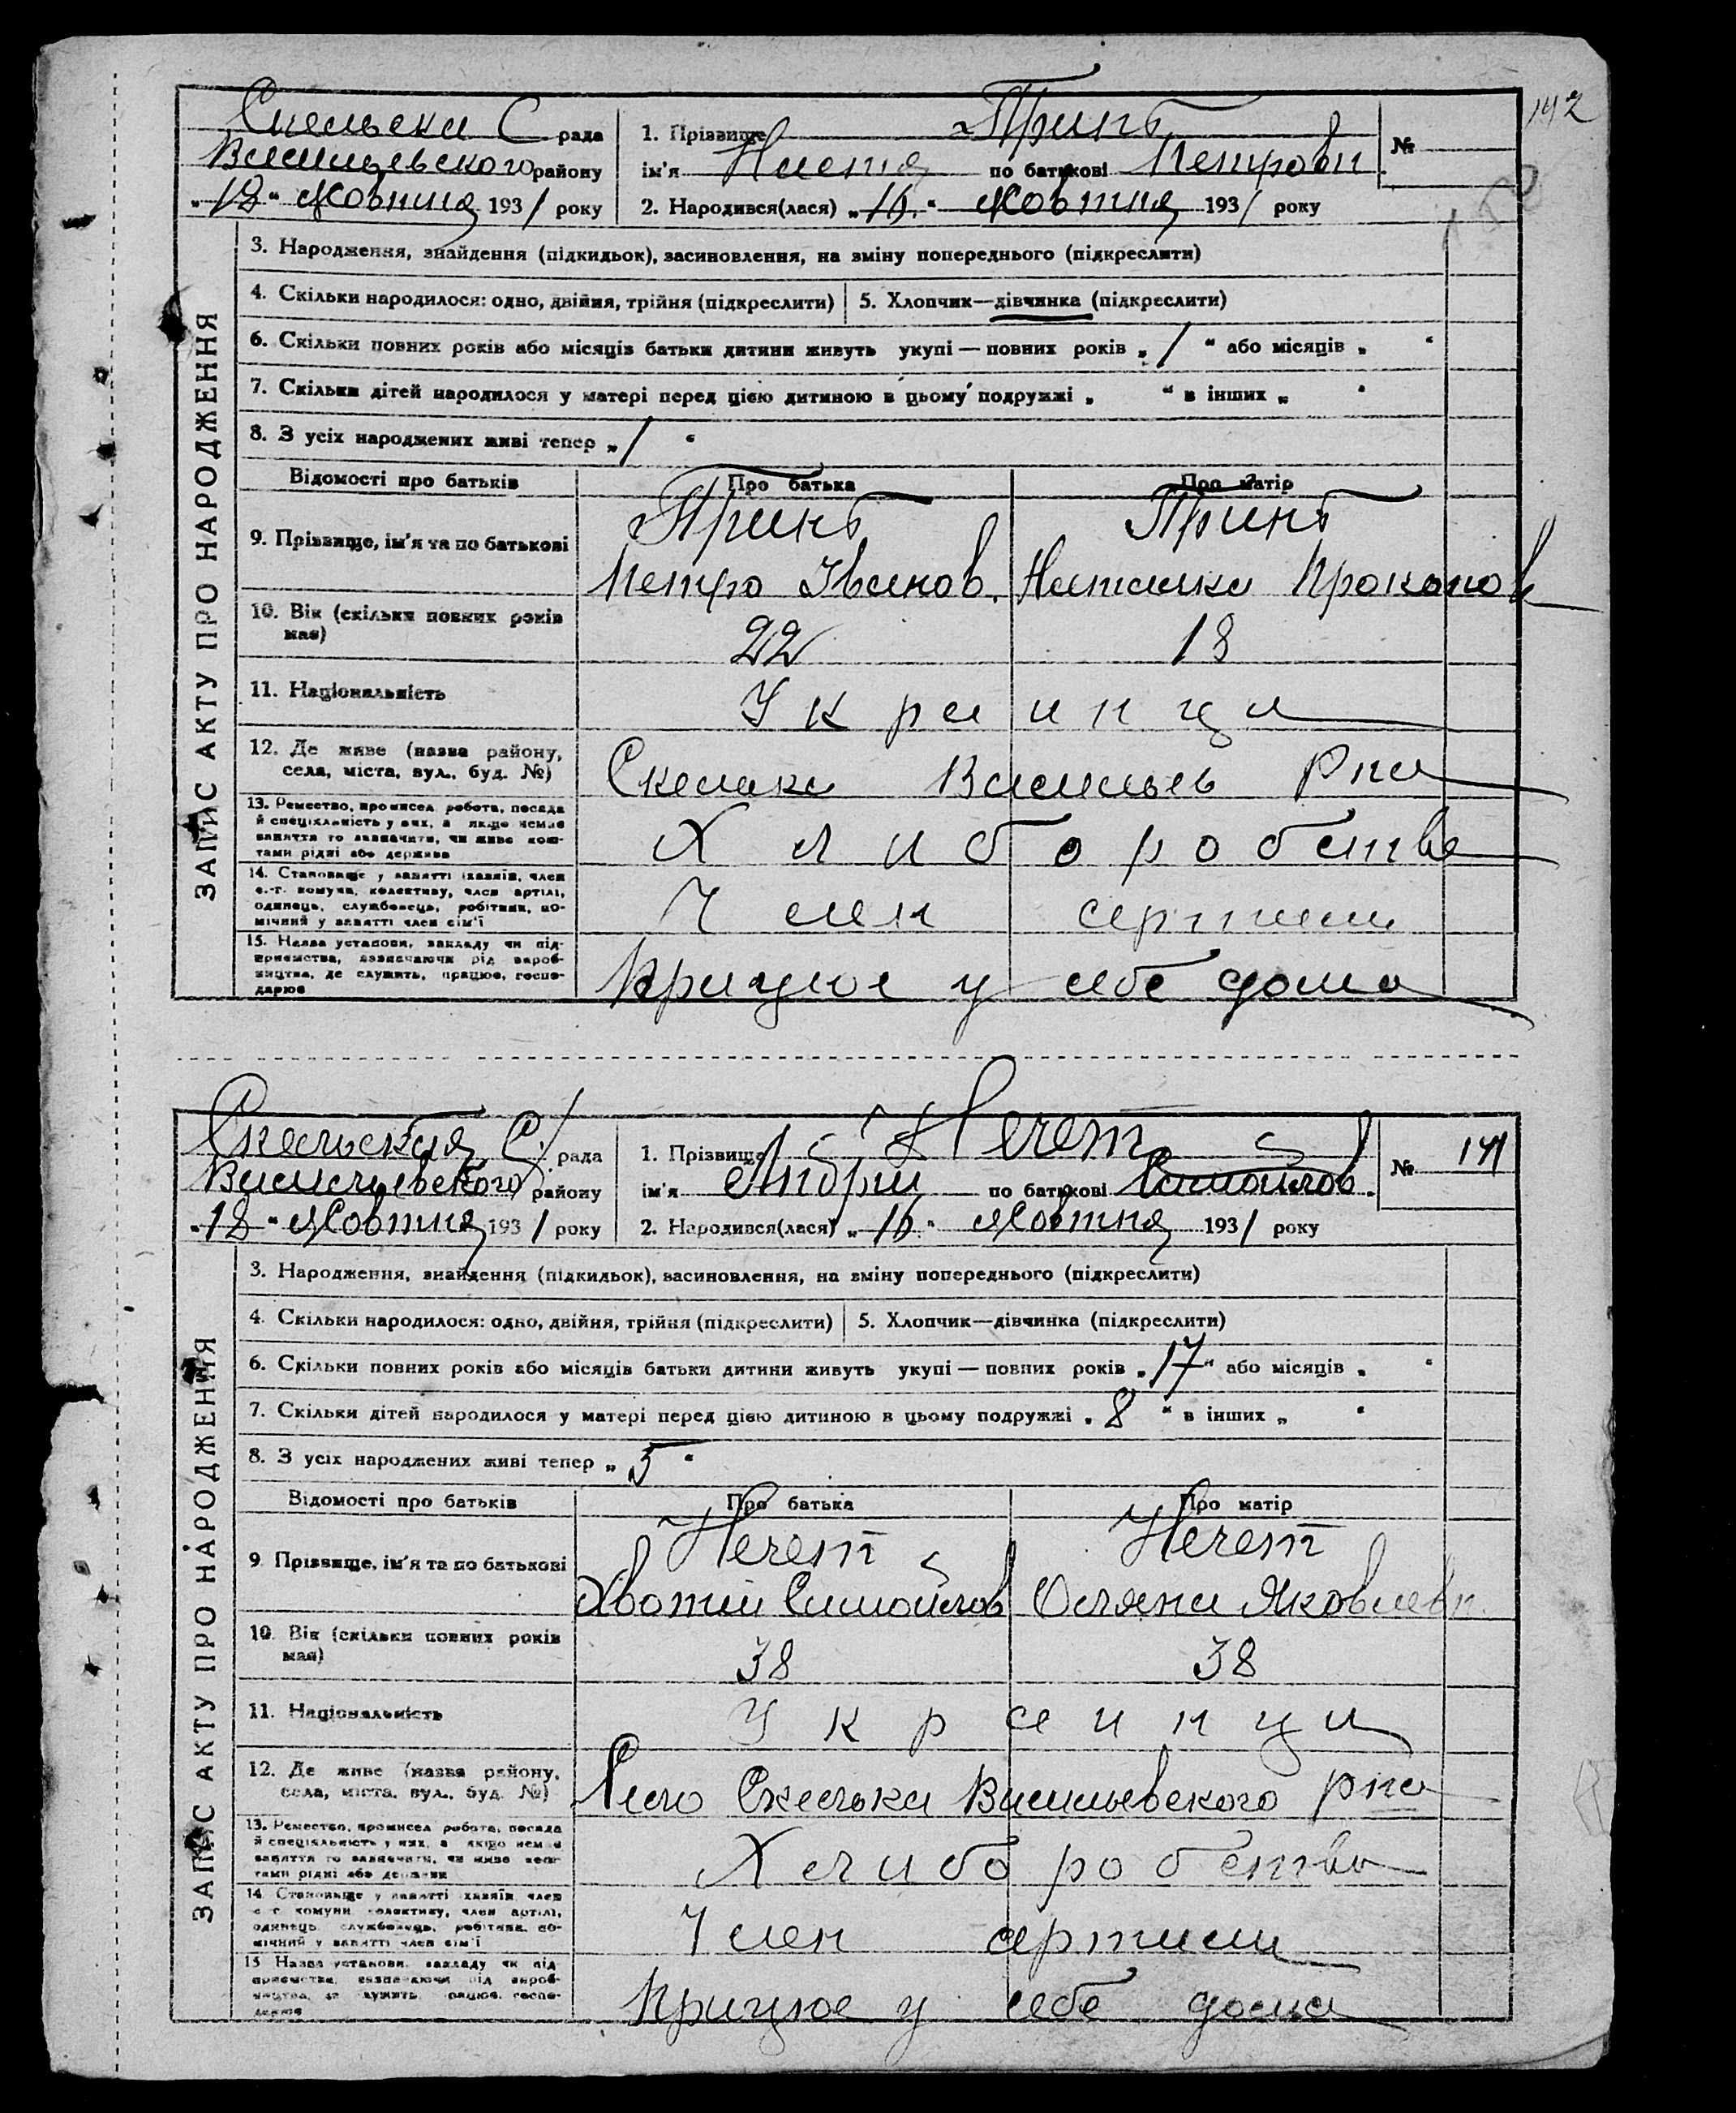 142
Скельска С рада
Василівського району
"18" Жовтня 1931 року
1. Прізвище Тринь
ім'я Настя по батькові Петровн
№
2. Народився(лася) "16" Жовтня 1931 року
ЗАПИС АКТУ ПРО НАРОДЖЕННЯ
3. Народження, знайдення (підкидьок), засиновлення, на зміну попереднього (підкреслити)
4. Скільки народилося: одно, двійня, трійня (підкреслити) 5. Хлопчик—дівчинка (підкреслити)
6. Скільки повних років або місяців батьки дитини живуть укупі — повних років „1" або місяців „ "
7. Скільки дітей народилося у матері перед цією дитиною в цьому подружжі „ " в інших „ "
8. З усіх народжених живі тепер „1"
Відомості про батьків Про батька Про матір
9. Прізвище, ім'я та по батькові Тринь Тринь
Петро Іванов. Наталка Прокопов
10. Вік (скільки повних років має) 22 18
11. Національність Украинци
12. Де живе (назва району, села, міста, вул., буд. №) Скельки Васильев Рна
13. Ремество, промисел, робота, посада й спеціяльність у них, а якщо немає заняття то зазначити, чи живе коштами рідні або держави Хлиборобства
14. Становище у занятті (хазяїн, член с.-г. комуни, колективу, член артілі, одинець, службовець, робітник, помічний у занятті член сім'ї Член артили
15. Назва установи, закладу чи підприємства, зазначаючи рід виробництва, де служить, працює, господарює Працює у себе дома
Скельская С/ рада
Василівського району
"18" Жовтня 1931 року
1. Прізвище Нечет
ім'я Андрій по батькові
№ 141
2. Народився(лася) "16" Жовтня 1931 року
ЗАПИС АКТУ ПРО НАРОДЖЕННЯ
3. Народження, знайдення (підкидьок), засиновлення, на зміну попереднього (підкреслити)
4. Скільки народилося: одно, двійня, трійня (підкреслити) 5. Хлопчик—дівчинка (підкреслити)
6. Скільки повних років або місяців батьки дитини живуть укупі — повних років „17" або місяців „ "
7. Скільки дітей народилося у матері перед цією дитиною в цьому подружжі „8" в інших „ "
8. З усіх народжених живі тепер „5"
Відомості про батьків Про батька Про матір
9. Прізвище, ім'я та по батькові Нечет Нечет
Самойлов Оляна Яковлевн
10. Вік (скільки повних років має) 38 38
11. Національність Украинци
12. Де живе (назва району, села, міста, вул., буд. №) Село Скельки Васильевского рна
13. Ремество, промисел, робота, посада й спеціяльність у них, а якщо немає заняття то зазначити, чи живе коштами рідні або держави Хлиборобства
14. Становище у занятті (хазяїн, член с.-г. комуни, колективу, член артілі, одинець, службовець, робітник, помічний у занятті член сім'ї Член артили
15. Назва установи, закладу чи підприємства, зазначаючи рід виробництва, де служить, працює, господарює Працює у себе дома